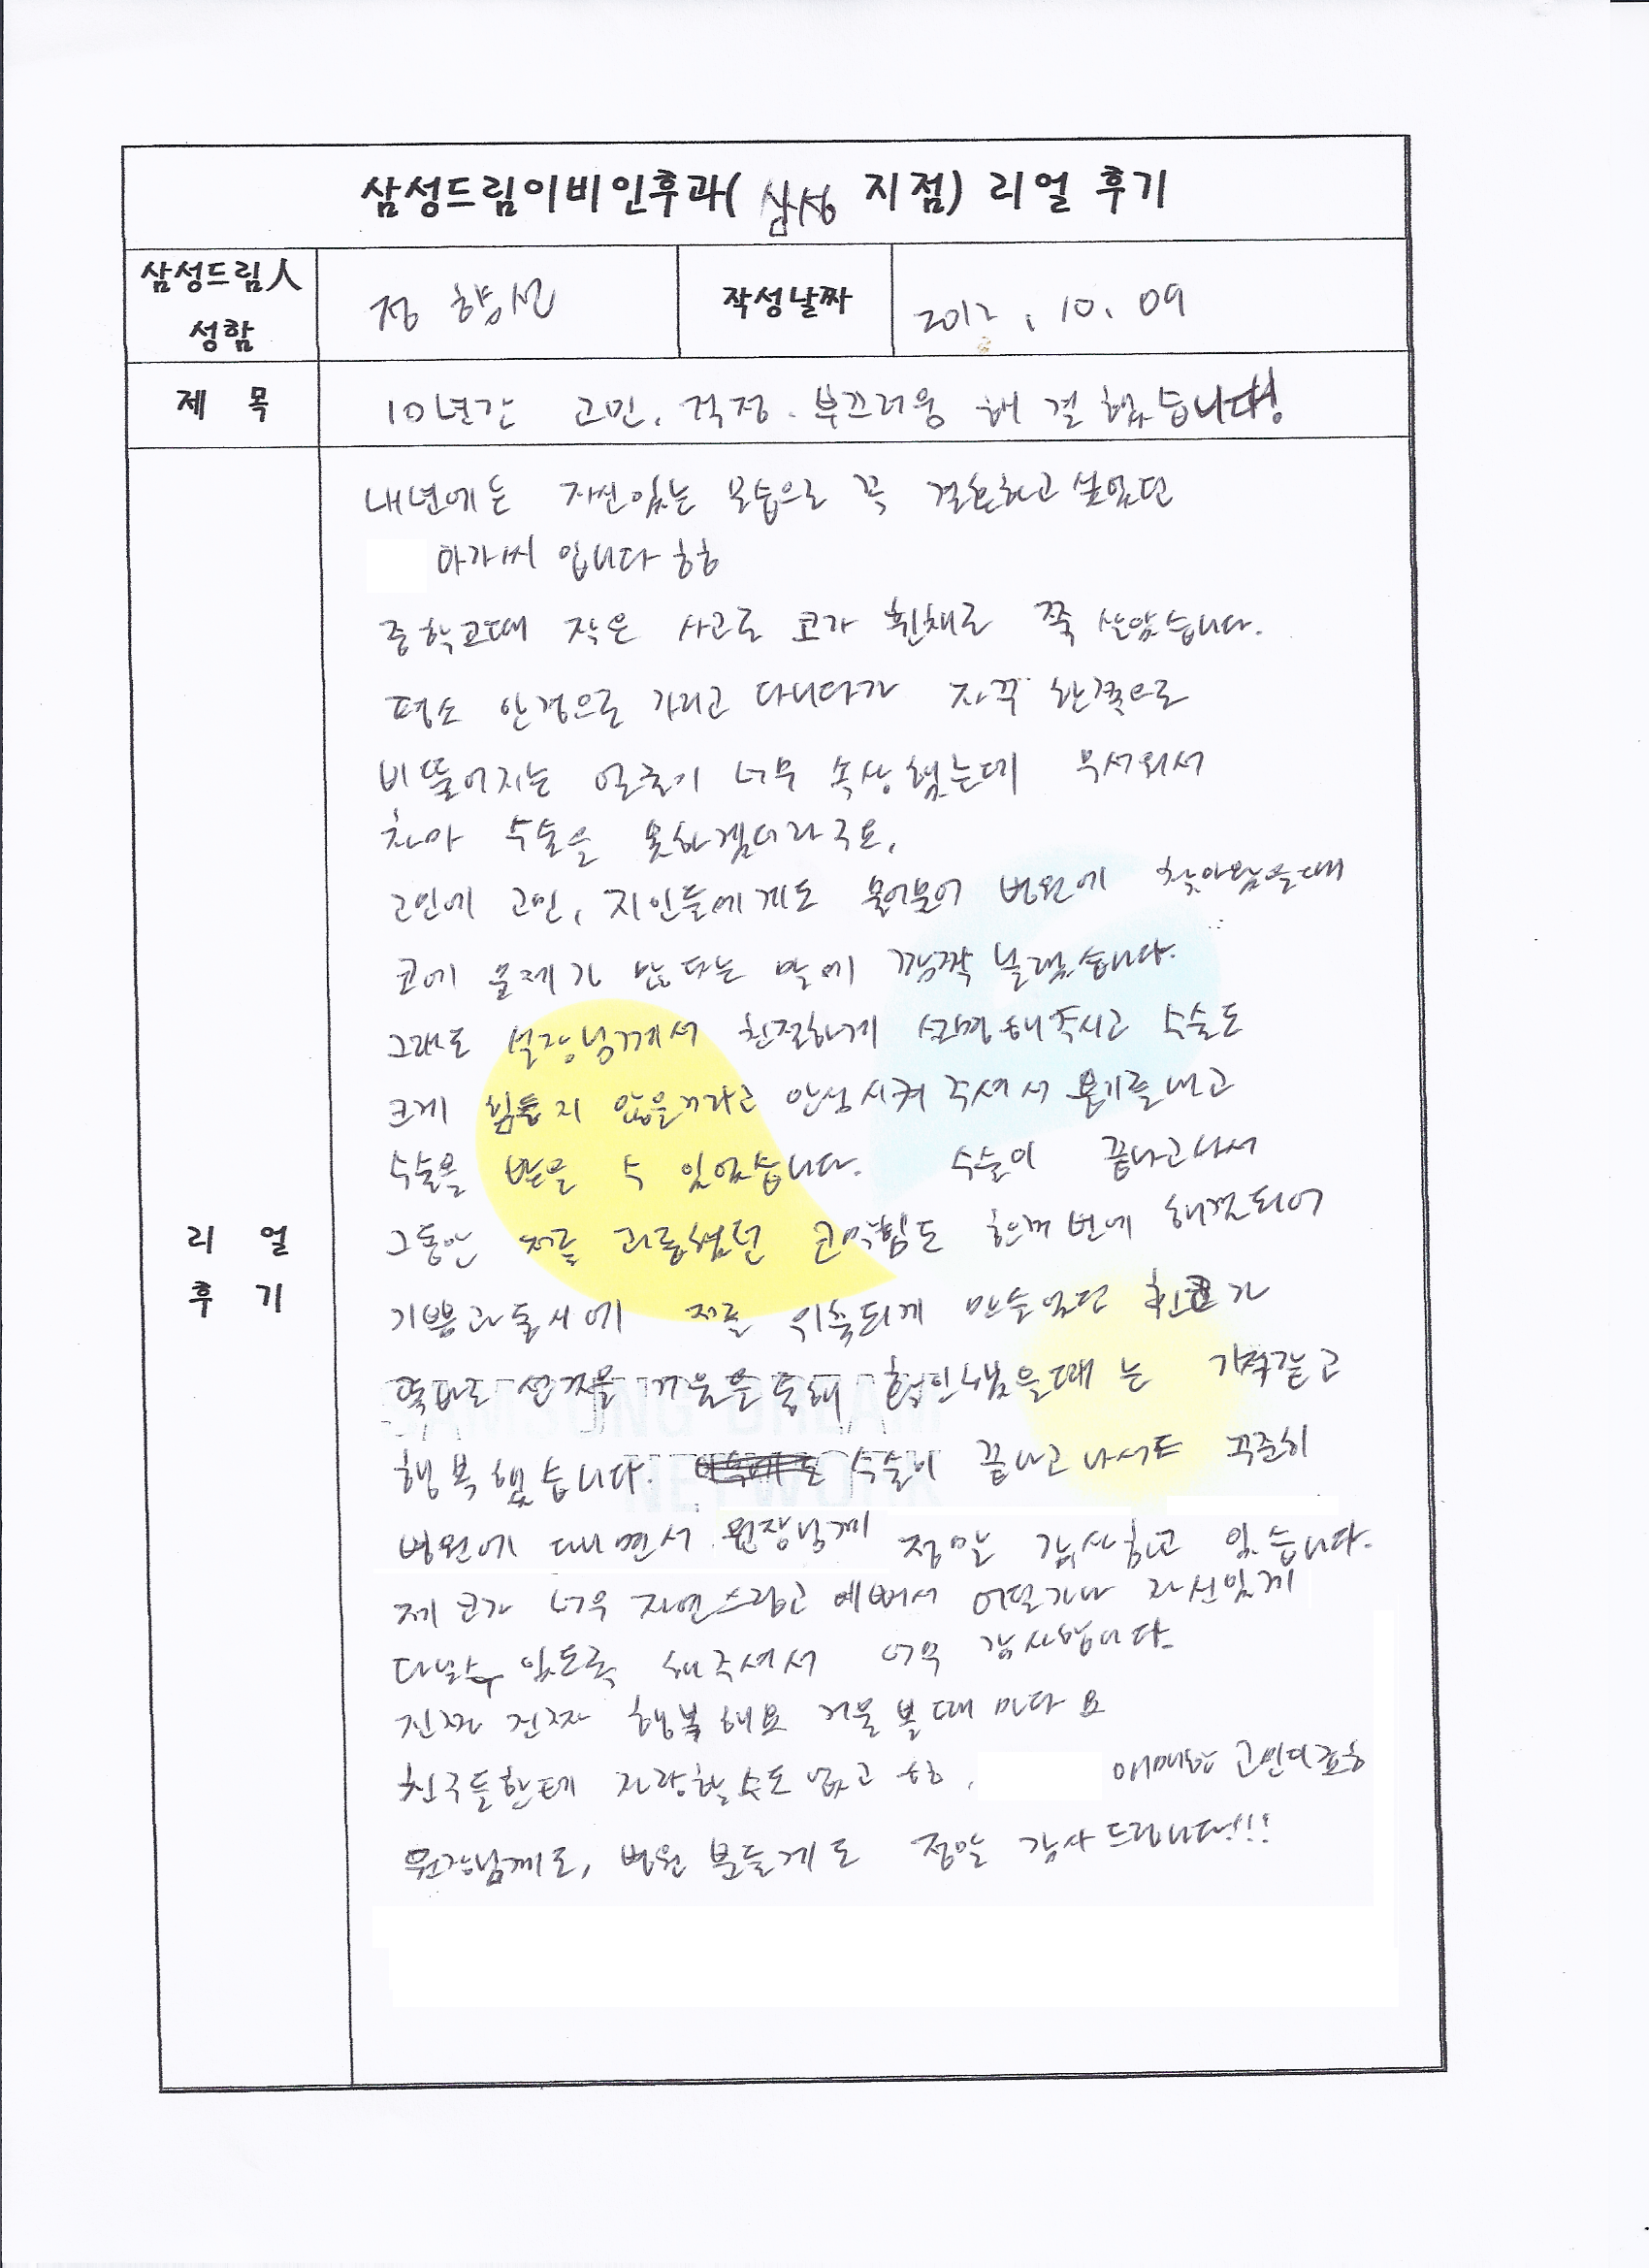 삼성드림이비인후과( 삼성 지점) 리얼 후기
삼성드림人 성함 정향선 작성날짜 2012. 10. 09
제 목 10년간 고민. 걱정. 부끄러움 해결했습니다!
내년에는 자신있는 모습으로 꼭 결혼하고 싶었던
아가씨 입니다 ㅎㅎ
중학교때 작은 사고로 코가 휜채로 쭉 살았습니다.
평소 안경으로 가리고 다니다가 자꾸 한쪽으로
비뚤어지는 얼굴이 너무 속상했는데 무서워서
차마 수술을 못하겠더라구요.
고민에 고민, 지인들에게도 물어물어 병원에 찾아왔을때
코에 문제가 많다는 말에 깜짝 놀랐습니다.
그래도 실장님께서 친절하게 설명해주시고 수술도
크게 힘들지 않을거라고 안심시켜 주셔서 용기를내고
수술을 받을 수 있었습니다. 수술이 끝나고나서
그동안 저를 괴롭혔던 코막힘도 한꺼번에 해결되어
기쁨과동시에 저를 위축되게 만들었던 휜코가
똑바로 선것을 거울을통해 확인했을때는 기적같고
행복했습니다. 수술이 끝나고나서도 꾸준히
병원에 다니면서 원장님께 정말 감사하고 있습니다.
제 코가 너무 자연스럽고 예뻐서 어딜가나 자신있게
다닐수 있도록 해주셔서 너무 감사합니다.
진짜 진짜 행복해요 거울볼때마다요
친구들한테 자랑할수도 없고 ㅎㅎ. 애매한 고민이죠ㅎ
원장님께도, 병원 분들께도 정말 감사드립니다!!!
리 얼
후 기
SAMSUNG DREAM
NETWORK